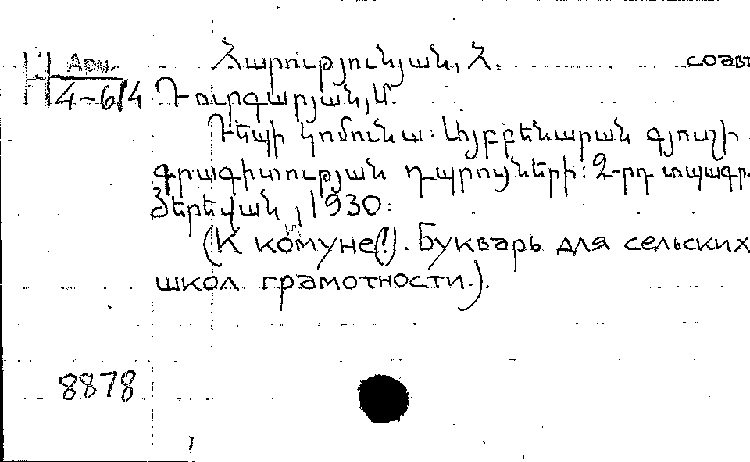 Н Арм. Հարությունյան, Հ. соавт
4-614 Դուրգարյան, Մ.
Դեպի կոմունա: Այբբենարան գյուղի
գրագիտության դպրոցների: 2-րդ տպագր.
Յերեվան, 1930:
(К комуне(!). Букварь для сельских
школ грамотности.).
8878